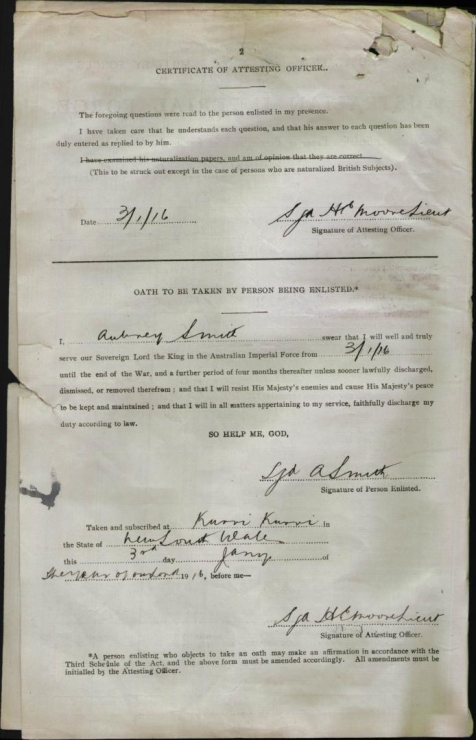 2
CERTIFICATE OF ATTESTING OFFICER.
The foregoing questions were read to the person enlisted in my presence.
I have taken care that he understands each question, and that his answer to each question has been
duly entered as replied to by him.
I have examined his naturalization papers, and am of opinion that they are correct.
(This to be struck out except in the case of persons who are naturalized British Subjects).
Date 3/1/16
Sgd H C Moore Lieut
Signature of Attesting Officer.
OATH TO BE TAKEN BY PERSON BEING ENLISTED.*
I, Aubrey Smith swear that I will well and truly
serve our Sovereign Lord the King in the Australian Imperial Force from 3/1/16
until the end of the War, and a further period of four months thereafter unless sooner lawfully discharged,
dismissed, or removed therefrom; and that I will resist His Majesty's enemies and cause His Majesty's peace
to be kept and maintained; and that I will in all matters appertaining to my service, faithfully discharge my
duty according to law.
SO HELP ME, GOD,
Sgd A Smith
Signature of Person Enlisted.
Taken and subscribed at Kurri Kurri in
the State of New South Wales
this 3rd day Jany of
the year of our Lord 1916, before me—
Sgd H C Moore Lieut
Signature of Attesting Officer.
*A person enlisting who objects to take an oath may make an affirmation in accordance with the
Third Schedule of the Act, and the above form must be amended accordingly. All amendments must be
initialled by the Attesting Officer.